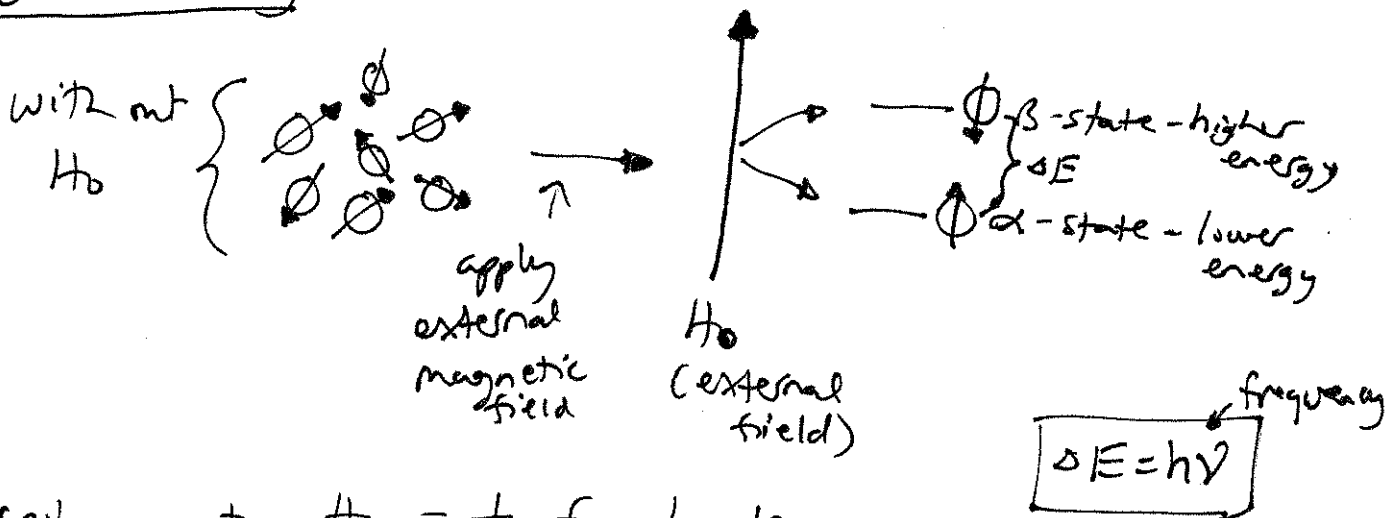 without
H₀
apply
external
magnetic
field
H₀
(external
field)
β-state-higher
energy
ΔE
α-state-lower
energy
frequency
ΔE=hν